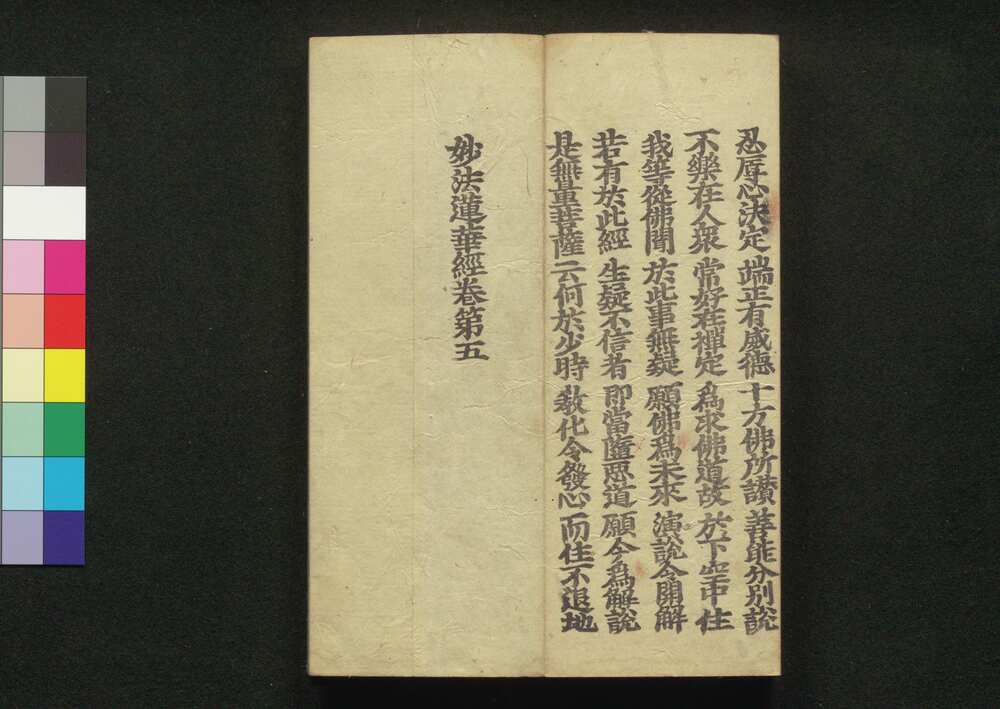 忍辱心決定 端正有威德 十方佛所讃 善能分別說
不樂在人衆 常好在禪定 爲求佛道故 於下空中住
我等從佛聞 於此事無疑 願佛爲未來 演說令開解
若有於此經 生疑不信者 即當墮惡道 願今爲解說
是無量菩薩 云何於少時 敎化令發心 而住不退地
妙法蓮華經卷第五